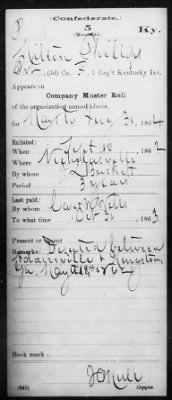 Confederate.
P 5 Ky.
(Mounted.)
Milton Phillips
Pvt., (3d) Co. F, 5 Reg't Kentucky Inf.
Appears on
Company Muster Roll
of the organization named above,
for May 1 to Aug 31, 1864
Enlisted:
When Sept 10, 1862
Where
By whom J Burchett
Period 3 years
Last paid:
By whom Capt
To what time Oct 31, 1863
Present or absent
Remarks: Deserted between
Adairsville & Kingston
Ga. May 18th 1864
Book mark:
(642) Copyist.